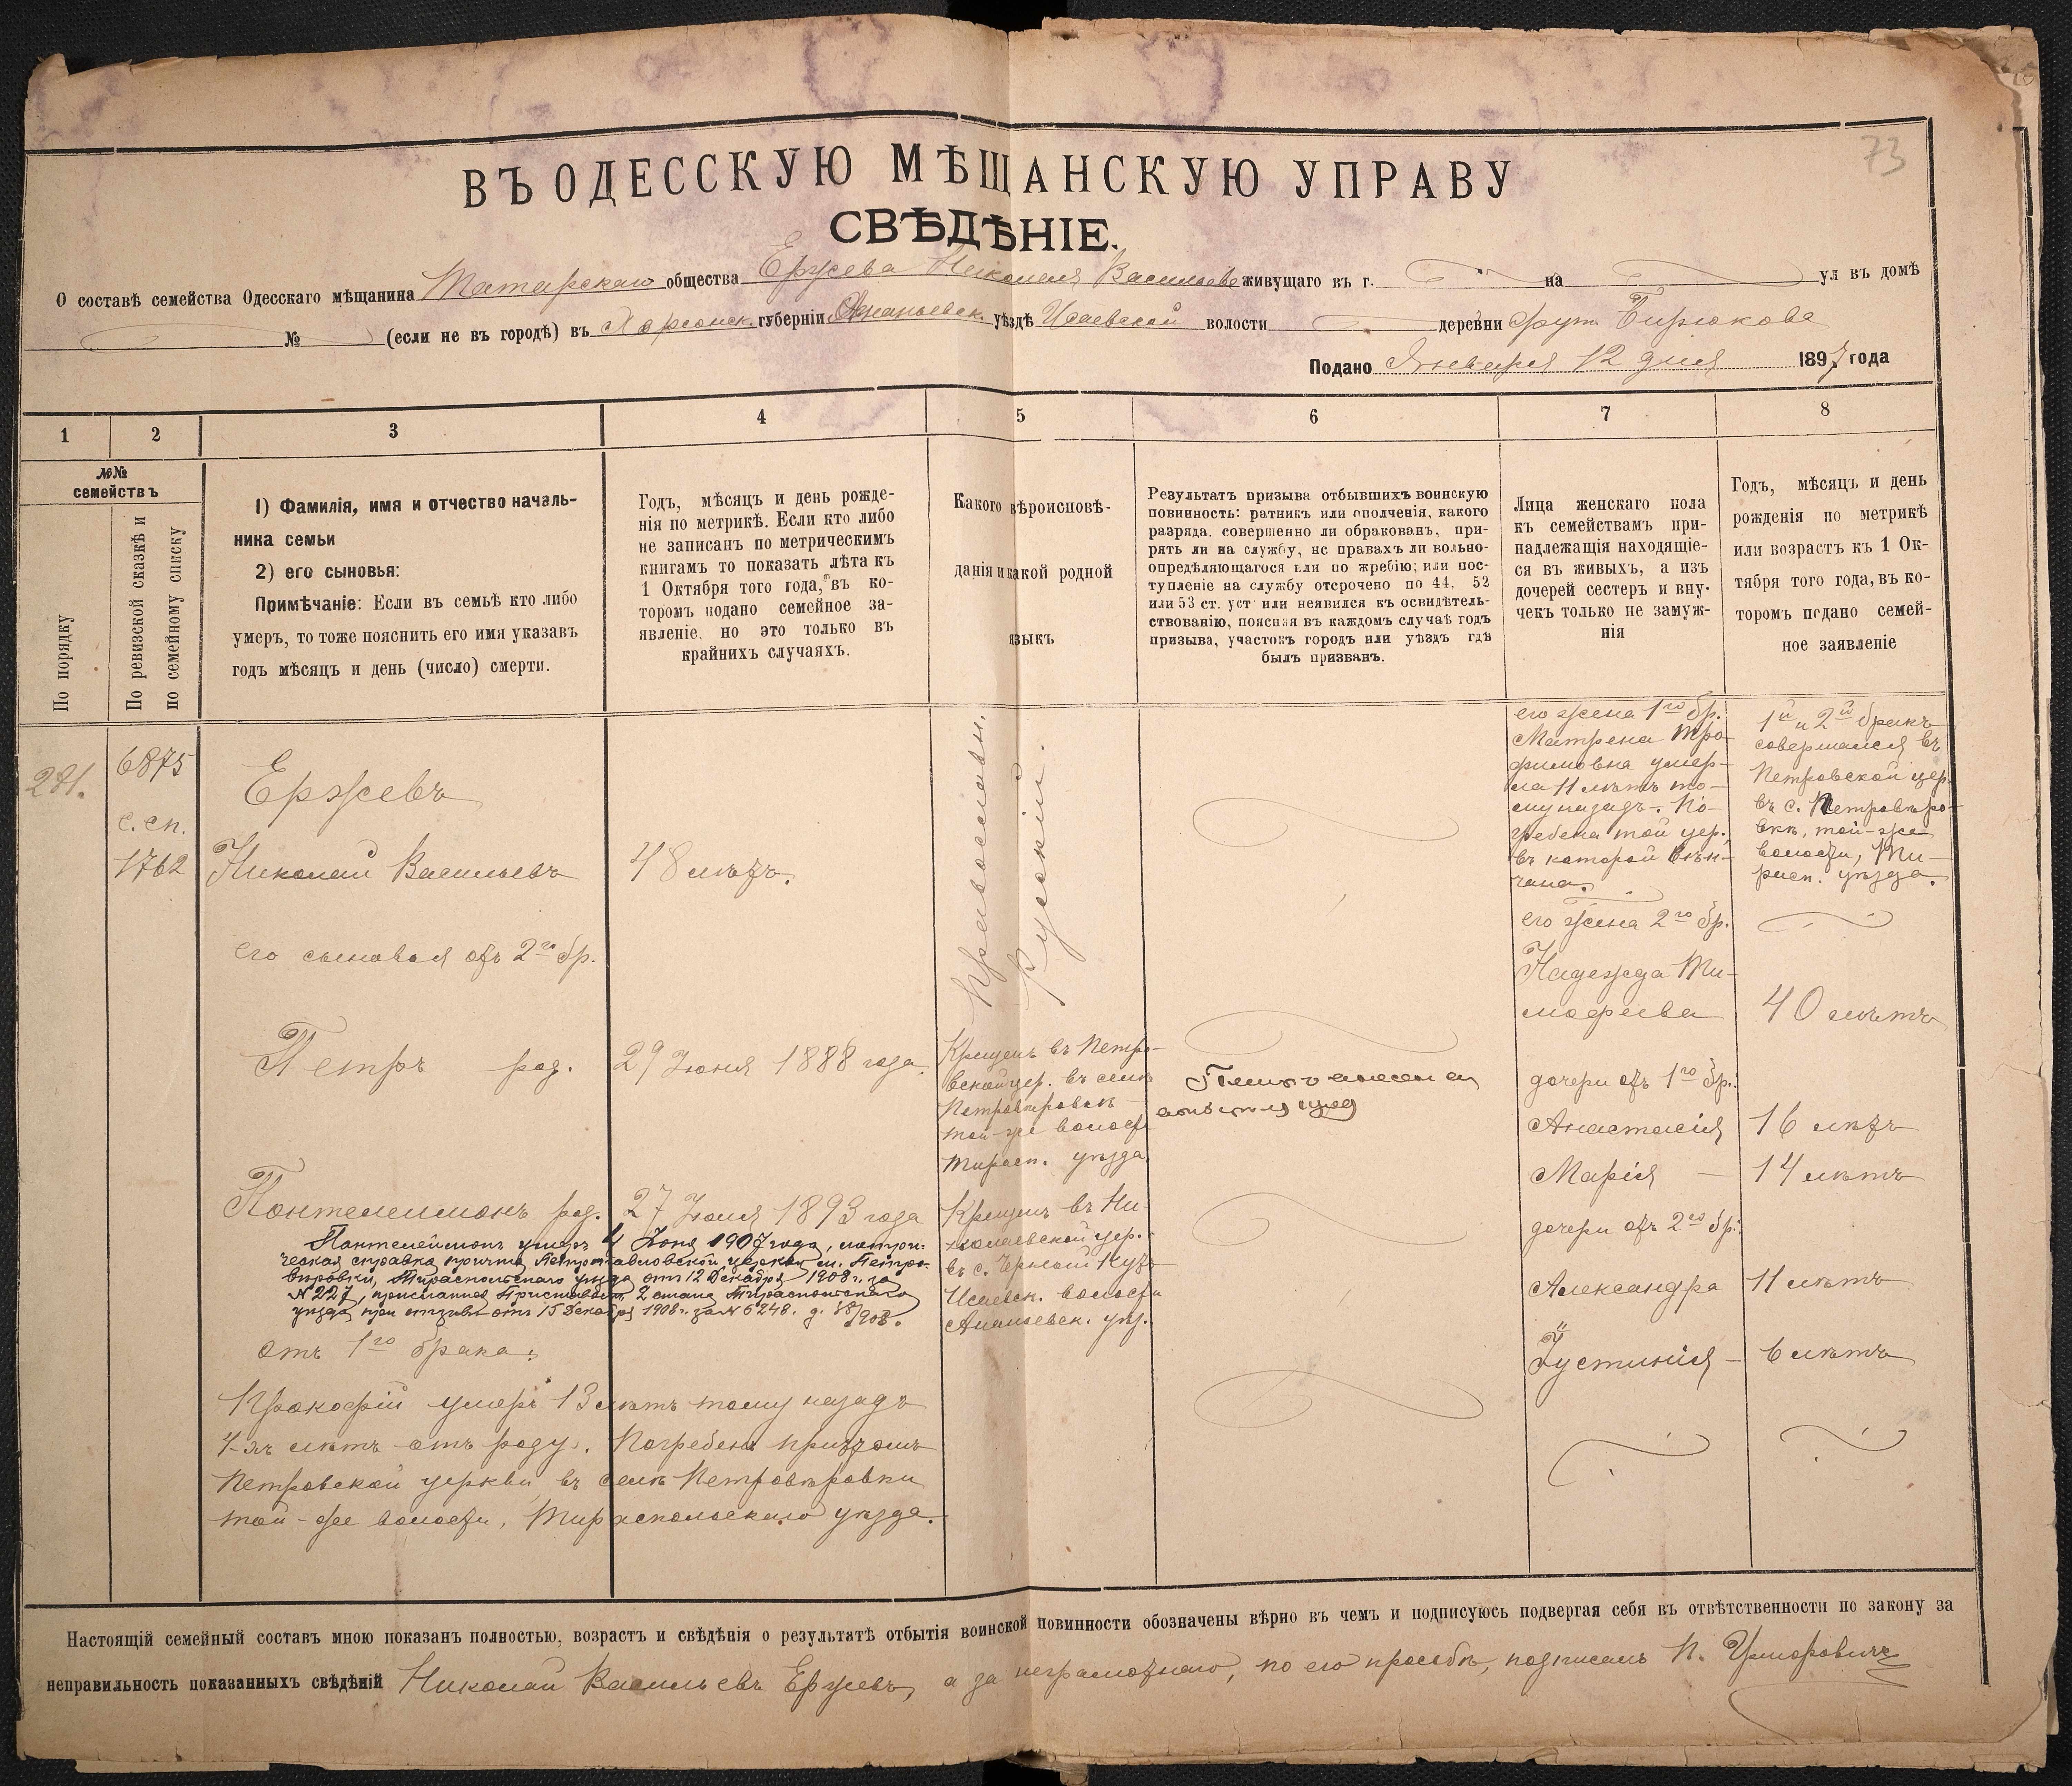 73
ВЪ ОДЕССКУЮ МѢЩАНСКУЮ УПРАВУ
СВѢДѢНІЕ.
О составѣ семейства Одесскаго мѣщанина Татарскаго общества Ержева Николая Васильева живущаго въ г. на ул въ домѣ
№ (если не въ городѣ) въ Херсонск. губерніи Ананьевск. уѣздѣ Исаевской волости деревни хут. Бирюкова
Подано Января 12 дня 1897 года
1 2 3 4 5 6 7 8
№№
семействъ
По порядку
По ревизской сказкѣ и
по семейному списку
1) Фамилія, имя и отчество началь-
ника семьи
2) его сыновья:
Примѣчаніе: Если въ семьѣ кто либо
умеръ, то тоже пояснить его имя указавъ
годъ мѣсяцъ и день (число) смерти.
Годъ, мѣсяцъ и день рожде-
нія по метрикѣ. Если кто либо
не записанъ по метрическимъ
книгамъ то показать лѣта къ
1 Октября того года, въ ко-
торомъ подано семейное за-
явленіе, но это только въ
крайнихъ случаяхъ.
Какого вѣроисповѣ-
данія и какой родной
языкъ
Результатъ призыва отбывшихъ воинскую
повинность: ратникъ или ополченія, какого
разряда. совершенно ли обракованъ, при-
рятъ ли на службу, нс правахъ ли вольно-
опредѣляющагося или по жребію; или пос-
тупленіе на службу отсрочено по 44, 52
или 53 ст. уст или неявился къ освидѣтель-
ствованію, поясняя въ каждомъ случаѣ годъ
призыва, участокъ городъ или уѣздъ гдѣ
былъ призванъ.
Лица женскаго пола
къ семействамъ при-
надлежащія находящіе-
ся въ живыхъ, а изъ
дочерей сестеръ и вну-
чекъ только не замуж-
нія
Годъ, мѣсяцъ и день
рожденія по метрикѣ
или возрастъ къ 1 Ок-
тября того года, въ ко-
торомъ подано семей-
ное заявленіе
281.
6875
с. сп.
1762
Ержевъ
Николай Васильевъ
48 лѣтъ.
Православн.
Русскій.
его жена 1го бр.
Матрена Тро-
фимовна умер-
ла 11 лѣтъ то-
му назадъ. По-
гребена той цер.
въ которой вѣн-
чана.
1й и 2й бракъ
совершался въ
Петровской цер.
въ с. Петровѣро-
вкѣ, той-же
волости, Ти-
расп. уѣзда.
его сыновья отъ 2го бр.
его жена 2го бр.
Надежда Ти-
мофеева
40 лѣтъ
Петръ род.
29 Іюня 1888 года.
Крещенъ въ Петро-
вской цер. въ селѣ
Петровѣровкѣ
той-же волости
Тирасп. уѣзда
дочери отъ 1го бр.:
Анастасія
16 лѣтъ
Марія —
14 лѣтъ
Пантелеимонъ род.
27 Іюля 1893 года
Крещенъ въ Ни-
колаевской цер.
въ с. Черномъ Куту
Исаевск. волости
Ананьевск. уѣз.
Пантелеймонъ умеръ 4 Іюня 1907 года, метри-
ческая справка причта Петропавловской церкви м. Петро-
вѣровки, Тираспольскаго уѣзда отъ 12 Декабря 1908 г. за
№ 227, присланная Приставомъ 2 стана Тираспольскаго
уѣзда при отзывѣ отъ 15 Декабря 1908 г. за № 6248.
дочери отъ 2го бр.:
Александра
11 лѣтъ
Іустинія —
6 лѣтъ
отъ 1го брака:
Прокофій умеръ 13 лѣтъ тому назадъ
4-хъ лѣтъ отъ роду. Погребенъ причтомъ
Петровской церкви въ селѣ Петровѣровки
той-же волости, Тираспольскаго уѣзда.
Настоящій семейный составъ мною показанъ полностью, возрастъ и свѣдѣнія о результатѣ отбытія воинской повинности обозначены вѣрно въ чемъ и подписуюсь подвергая себя въ отвѣтственности по закону за
неправильность показанныхъ свѣдѣній Николай Васильевъ Ержевъ, а за неграмотнаго, по его просьбѣ, подписалъ